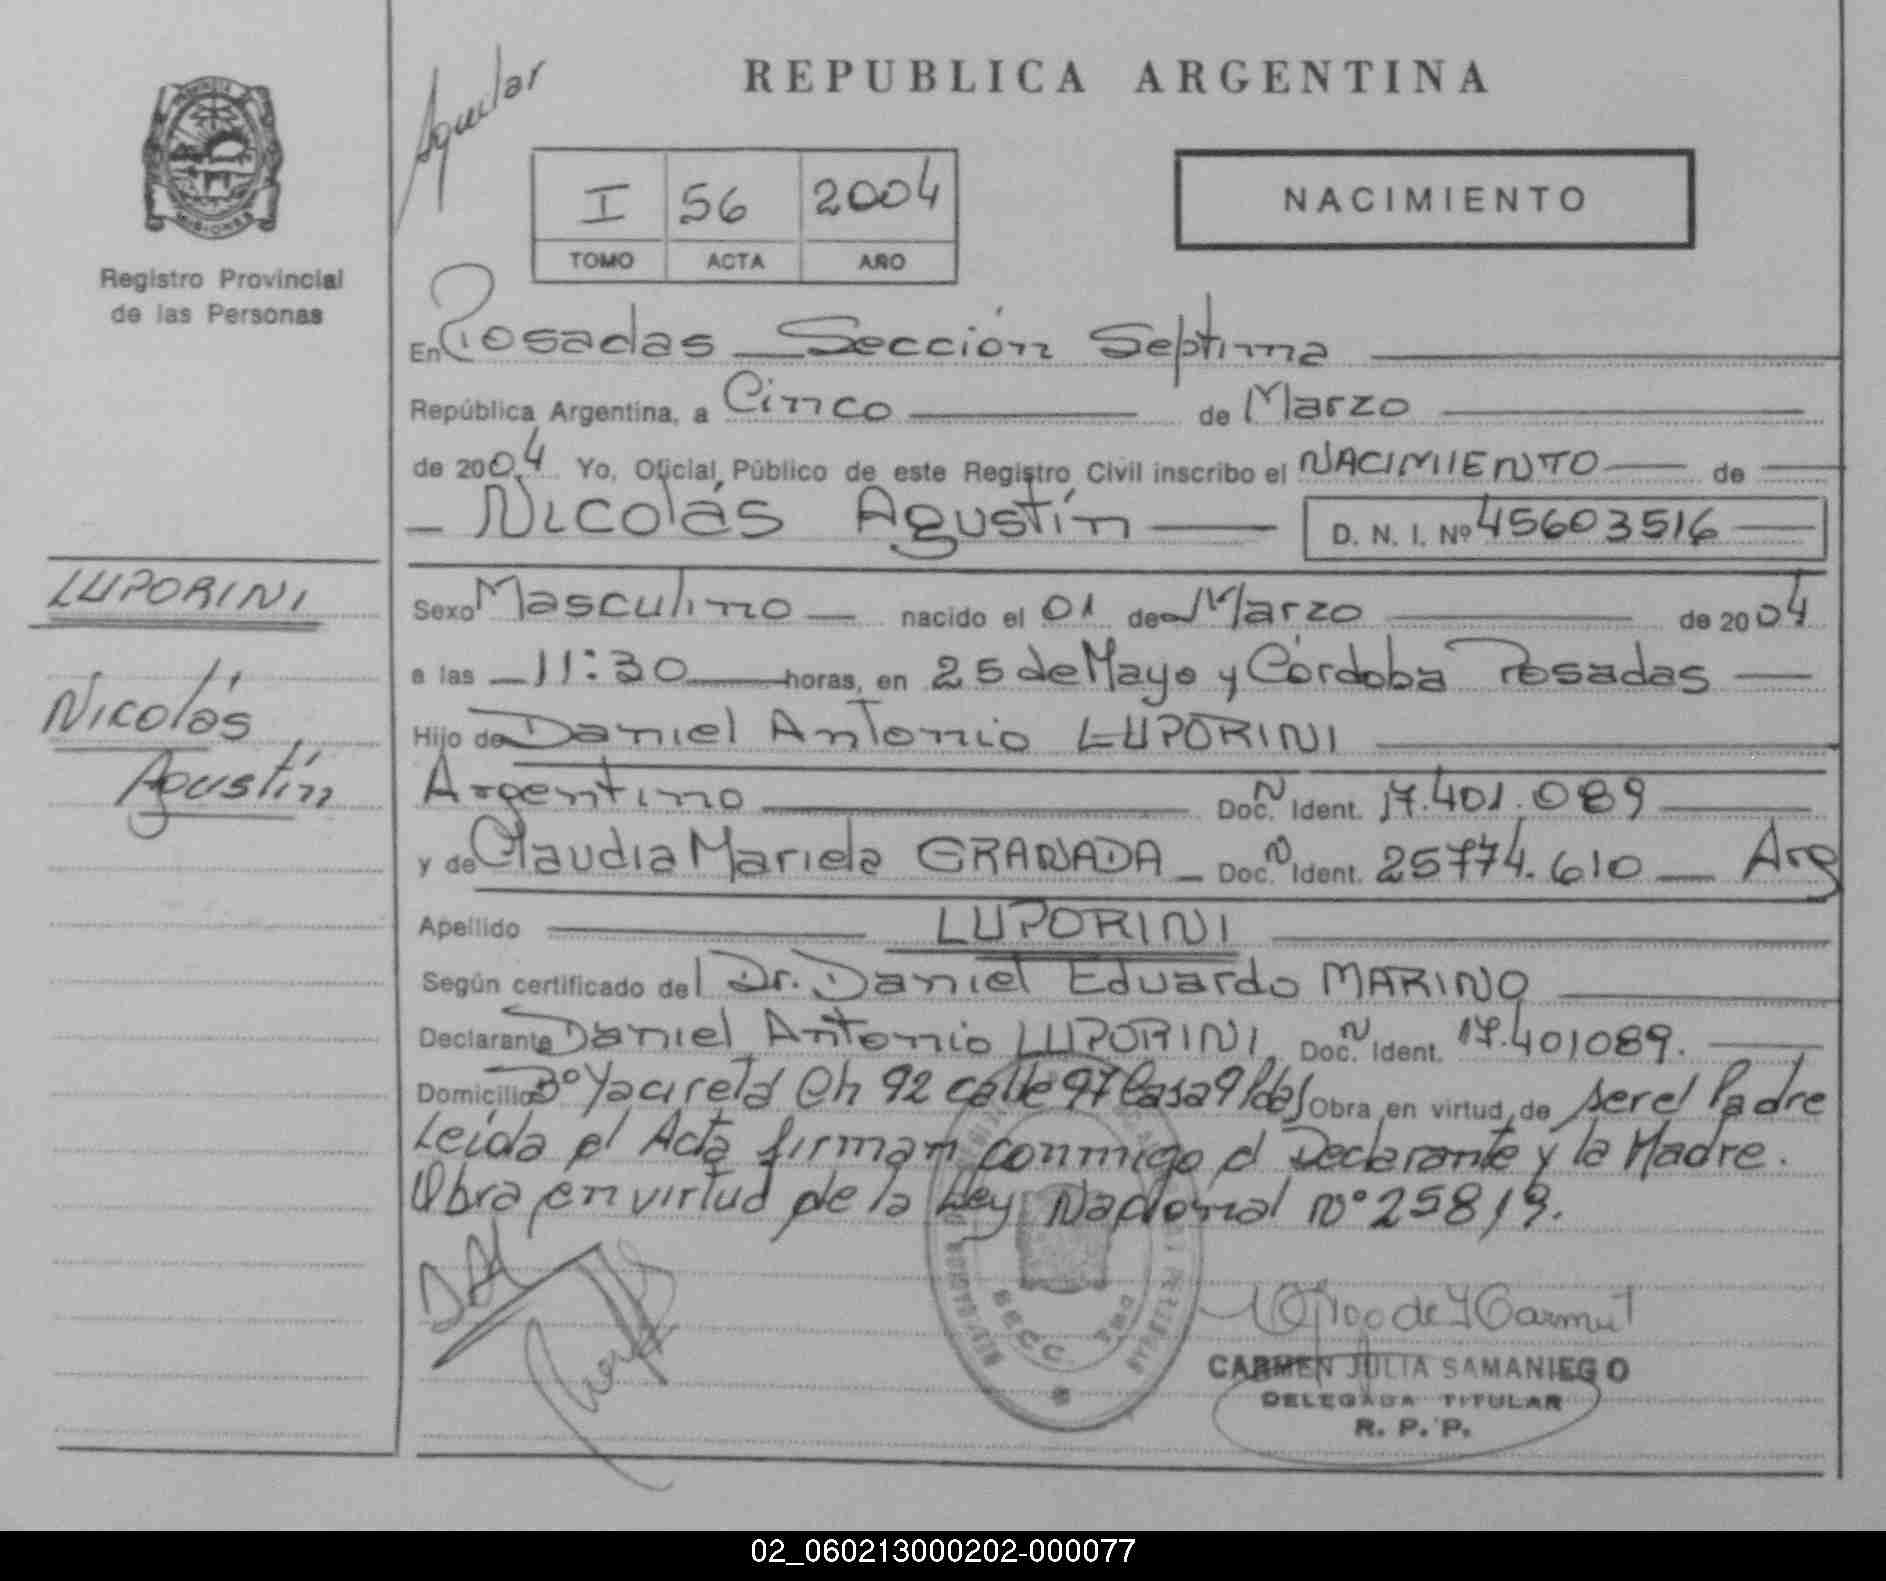 REPUBLICA ARGENTINA
Aguilar
I 56 2004
TOMO ACTA AÑO
NACIMIENTO
MISIONES
Registro Provincial
de las Personas
En Posadas Sección Septima
República Argentina, a Cinco de Marzo
de 2004 Yo, Oficial Público de este Registro Civil inscribo el NACIMIENTO de
Nicolás Agustín D. N. I. Nº 45603516
LUPORINI
Nicolás
Agustín
Sexo Masculino nacido el 01 de Marzo de 2004
a las 11:30 horas, en 25 de Mayo y Córdoba Posadas
Hijo de Daniel Antonio LUPORINI
Argentino Doc. N Ident. 17.401.089
y de Claudia Mariela GRANADA Doc. N Ident. 25774.610 Arg
Apellido LUPORINI
Según certificado del Dr. Daniel Eduardo MARINO
Declarante Daniel Antonio LUPORINI Doc. N Ident. 17.401089.
Domicilio Bº Yaciretá Ch 92 calle 97 Casa 9 Pdas Obra en virtud de ser el Padre
Leída el Acta firman conmigo el Declarante y la Madre.
Obra en virtud de la Ley Nacional Nº 25819.
SECC. 7ma
CARMEN JULIA SAMANIEGO
DELEGADA TITULAR
R. P. P.
02_060213000202-000077